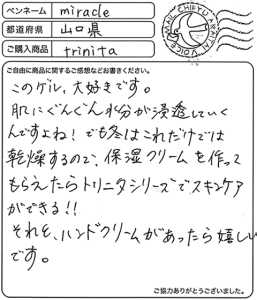 ペンネーム miracle
都道府県 山口県
ご購入商品 trinita
MAIL CHIRYU ARATAN VOICE
ご自由に商品に関するご感想などお書きください。
このゲル、大好きです。
肌にぐんぐん水分が浸透していく
んですよね！でも冬はこれだけでは
乾燥するので、保湿クリームを作って
もらえたらトリニタシリーズでスキンケア
ができる！！
それと、ハンドクリームがあったら嬉しい
です。
ご協力ありがとうございました。